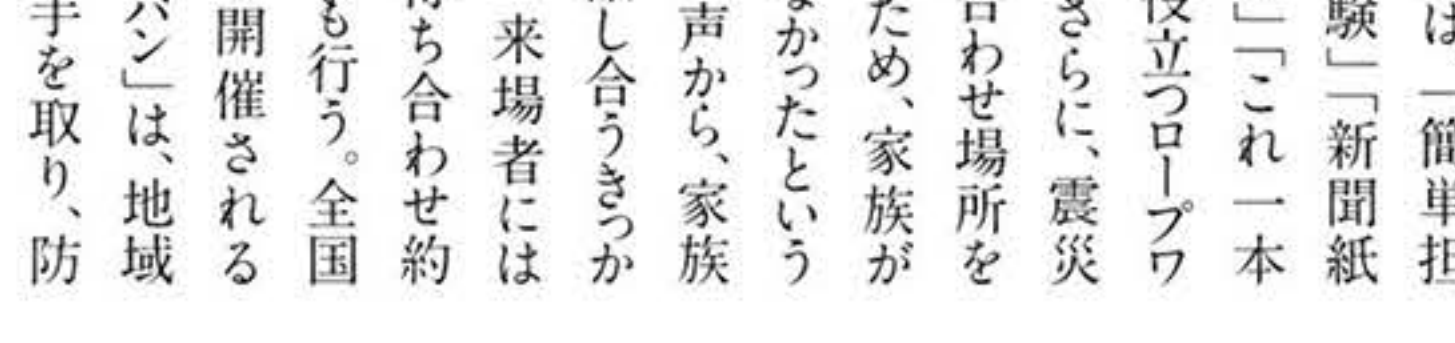 は「簡単担
験」「新聞紙
」「これ一本
役立つロープワ
さらに、震災
合わせ場所を
ため、家族が
なかったという
声から、家族
し合うきっか
来場者には
待ち合わせ約
も行う。全国
開催される
パン」は、地域
手を取り、防